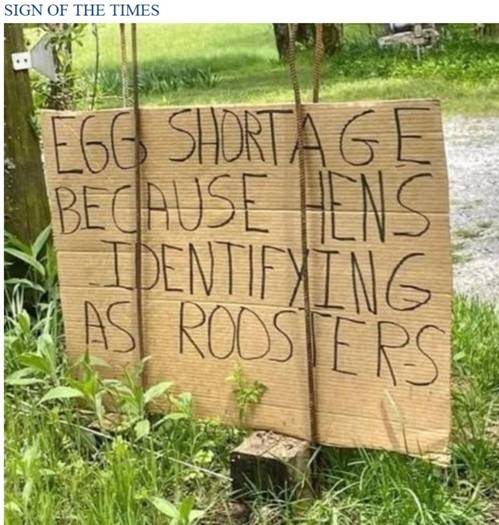 SIGN OF THE TIMES
EGG SHORTAGE
BECAUSE HENS
IDENTIFYING
AS ROOSTERS